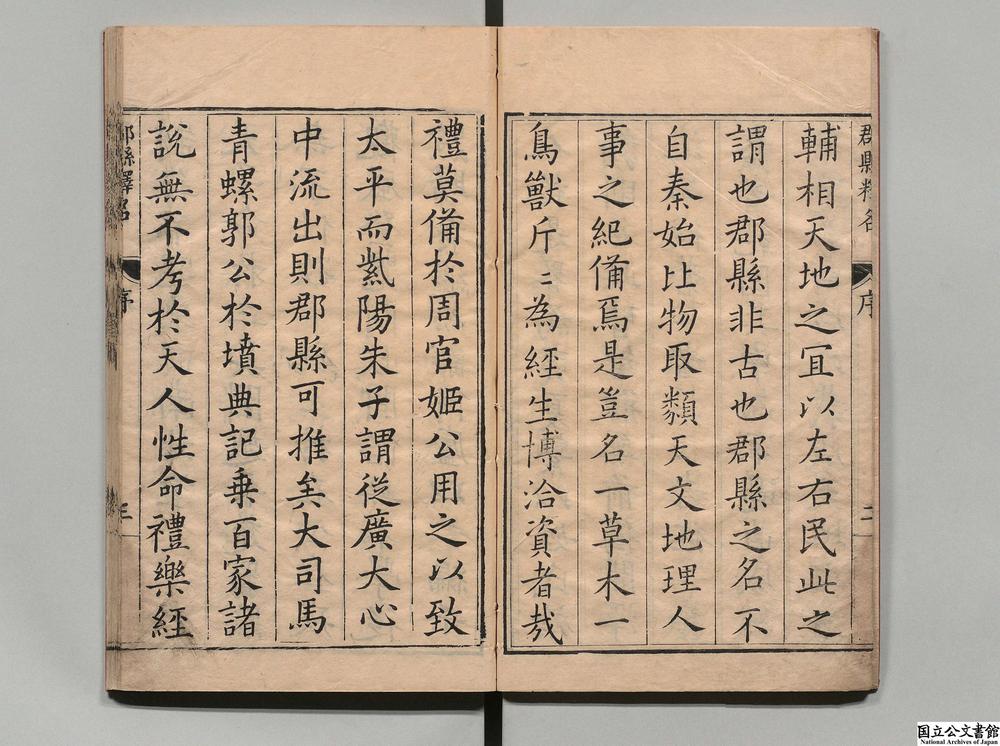 郡縣釋名
序
二
輔相天地之宜以左右民此之
謂也郡縣非古也郡縣之名不
自秦始比物取類天文地理人
事之紀備焉是豈名一草木一
鳥獸斤二為經生博洽資者哉
禮莫備於周官姬公用之以致
太平而紫陽朱子謂從廣大心
中流出則郡縣可推矣大司馬
青螺郭公於墳典記乗百家諸
說無不考於天人性命禮樂經
郡縣釋名
序
三
国立公文書館
National Archives of Japan